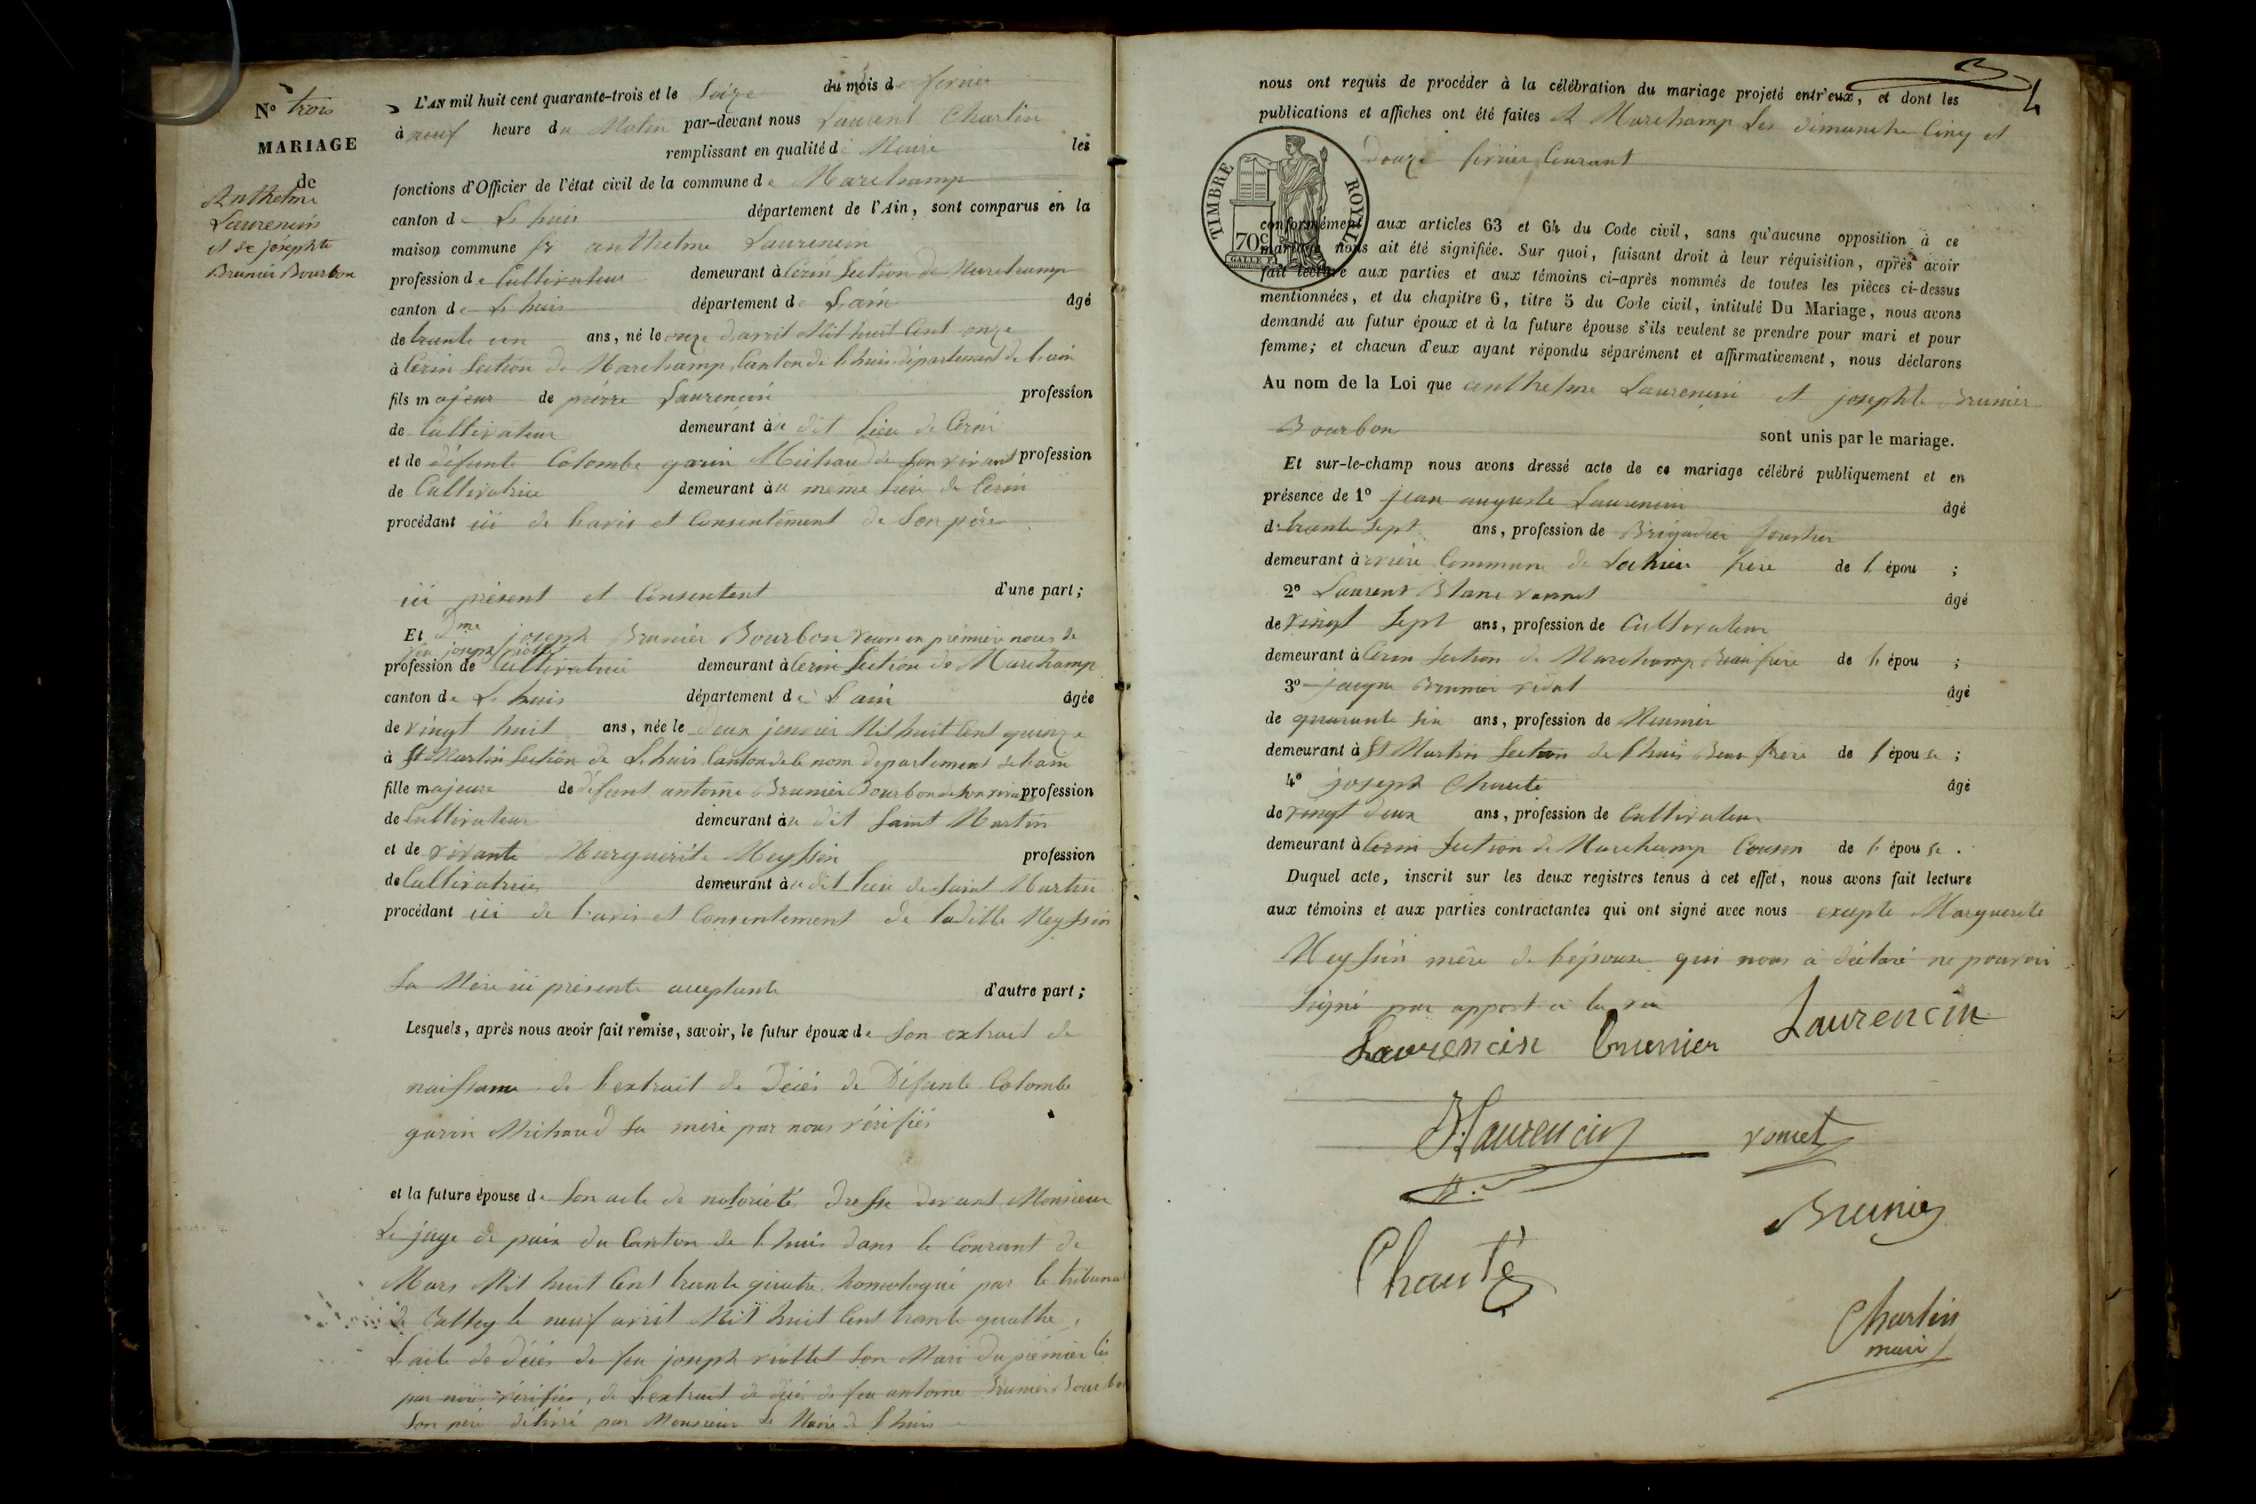 N° trois
MARIAGE
de
Anthelme
Laurencin
et de josephte
Brunier Bourbon
L'AN mil huit cent quarante-trois et le Seize du mois de fevrier
à neuf heure du Matin par-devant nous Laurent Charlin
remplissant en qualité de Maire les
fonctions d'Officier de l'état civil de la commune de Marchamp
canton de L'huis département de l'Ain, sont comparus en la
maison commune Sr anthelme Laurencin
profession de Cultivateur demeurant à Cerin Section de Marchamp
canton de L'huis département de L'ain âgé
de trente un ans, né le onze d'avril Mil huit Cent onze
à Cerin Section de Marchamp, Canton de l'huis département de l'ain
fils majeur de pierre Laurencin profession
de Cultivateur demeurant au dit lieu de Cerin
et de défunte Colombe garin Michaud de son vivant profession
de Cultivatrice demeurant au meme lieu de Cerin
procédant ici de l'avis et Consentement de Son père
ici présent et Consentent d'une part;
Et Dme joseph Brunier Bourbon veuve en première noces de
feu joseph
profession de Cultivatrice demeurant à Cerin Section de Marchamp
canton de L'huis département de L'ain âgée
de vingt huit ans, née le deux janvier Mil huit Cent quinze
à St Martin Section de L'huis Canton de le nom departement de l'ain
fille majeure de défunt antoine Brunier Bourbon de son vivant profession
de Cultivateur demeurant au dit Saint Martin
et de vivante Marguerite Meyssin profession
de Cultivatrice demeurant au dit lieu de Saint Martin
procédant ici de l'avis et Consentement de ladite Meyssin
Sa Mère ici présente acceptante d'autre part;
Lesquels, après nous avoir fait remise, savoir, le futur époux de Son extrait de
naissance de l'extrait de Décés de Défunte Colombe
garin Michaud Sa mère par nous vérifiés
et la future épouse de Son acte de notoriété dressé devant Monsieur
Le juge de paix du Canton de l'huis dans le Courant de
Mars Mil huit Cent trente quatre homologué par le tribunal
de Belley le neuf avril Mil huit Cent trente quatre,
L'acte de décés de feu joseph viollet Son Mari du premier lit
par nous vérifiés, de L'extrait de décés de feu antoine Brunier Bourbon
Son père délivré par Monsieur Le Maire de l'huis
nous ont requis de procéder à la célébration du mariage projeté entr'eux, et dont les
publications et affiches ont été faites A Marchamp Les dimanche Cinq et
douze fevrier Courant
TIMBRE ROYAL
70c
conformément aux articles 63 et 64 du Code civil, sans qu'aucune opposition à ce
mariage nous ait été signifiée. Sur quoi, faisant droit à leur réquisition, après avoir
fait lecture aux parties et aux témoins ci-après nommés de toutes les pièces ci-dessus
mentionnées, et du chapitre 6, titre 5 du Code civil, intitulé Du Mariage, nous avons
demandé au futur époux et à la future épouse s'ils veulent se prendre pour mari et pour
femme; et chacun d'eux ayant répondu séparément et affirmativement, nous déclarons
Au nom de la Loi que anthelme Laurencin et josephte Brunier
Bourbon sont unis par le mariage.
Et sur-le-champ nous avons dressé acte de ce mariage célébré publiquement et en
présence de 1° jean auguste Laurencin âgé
de trente sept ans, profession de Brigadier forestier
demeurant à Commune de frère de l'épou ;
2° Laurent Blanc vonnet âgé
de vingt Sept ans, profession de Cultivateur
demeurant à Cerin Section de Marchamp Beau frère de l'épou ;
3° jacque Brunier vidal âgé
de quarante six ans, profession de Meunier
demeurant à St Martin Section de l'huis Beau frere de l'épouse ;
4° joseph Chauté âgé
de vingt deux ans, profession de Cultivateur
demeurant à Cerin Section de Marchamp Cousin de l'épouse .
Duquel acte, inscrit sur les deux registres tenus à cet effet, nous avons fait lecture
aux témoins et aux parties contractantes qui ont signé avec nous excepte Marguerite
Meyssin mère de l'épouse qui nous a déclaré ne pouvoir
Signé par apport a la vue
Laurencin brunier Laurencin
Laurencin vonnet
Brunier
Chauté
Charlin
maire